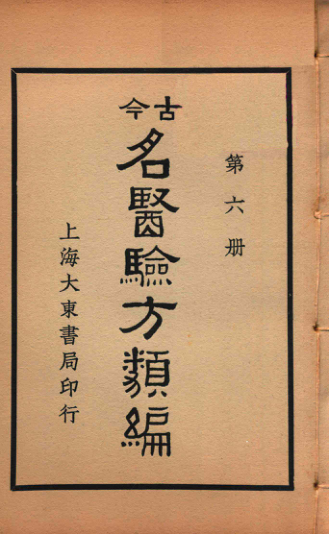 第六册
古今
名醫驗方類編
上海大東書局印行